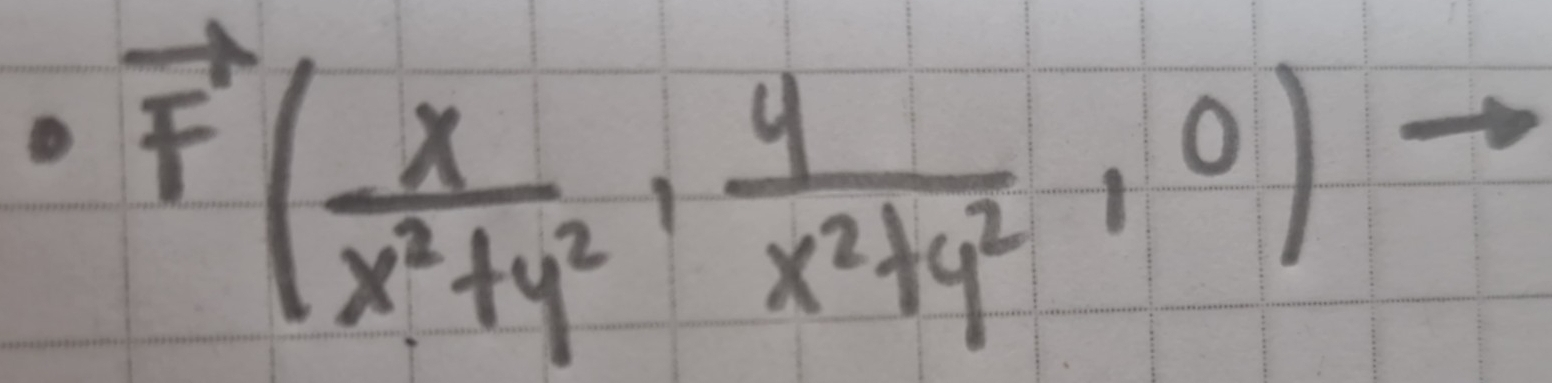 • \vec{F} \left( \frac{x}{x^2+y^2} , \frac{y}{x^2+y^2} , 0 \right) →